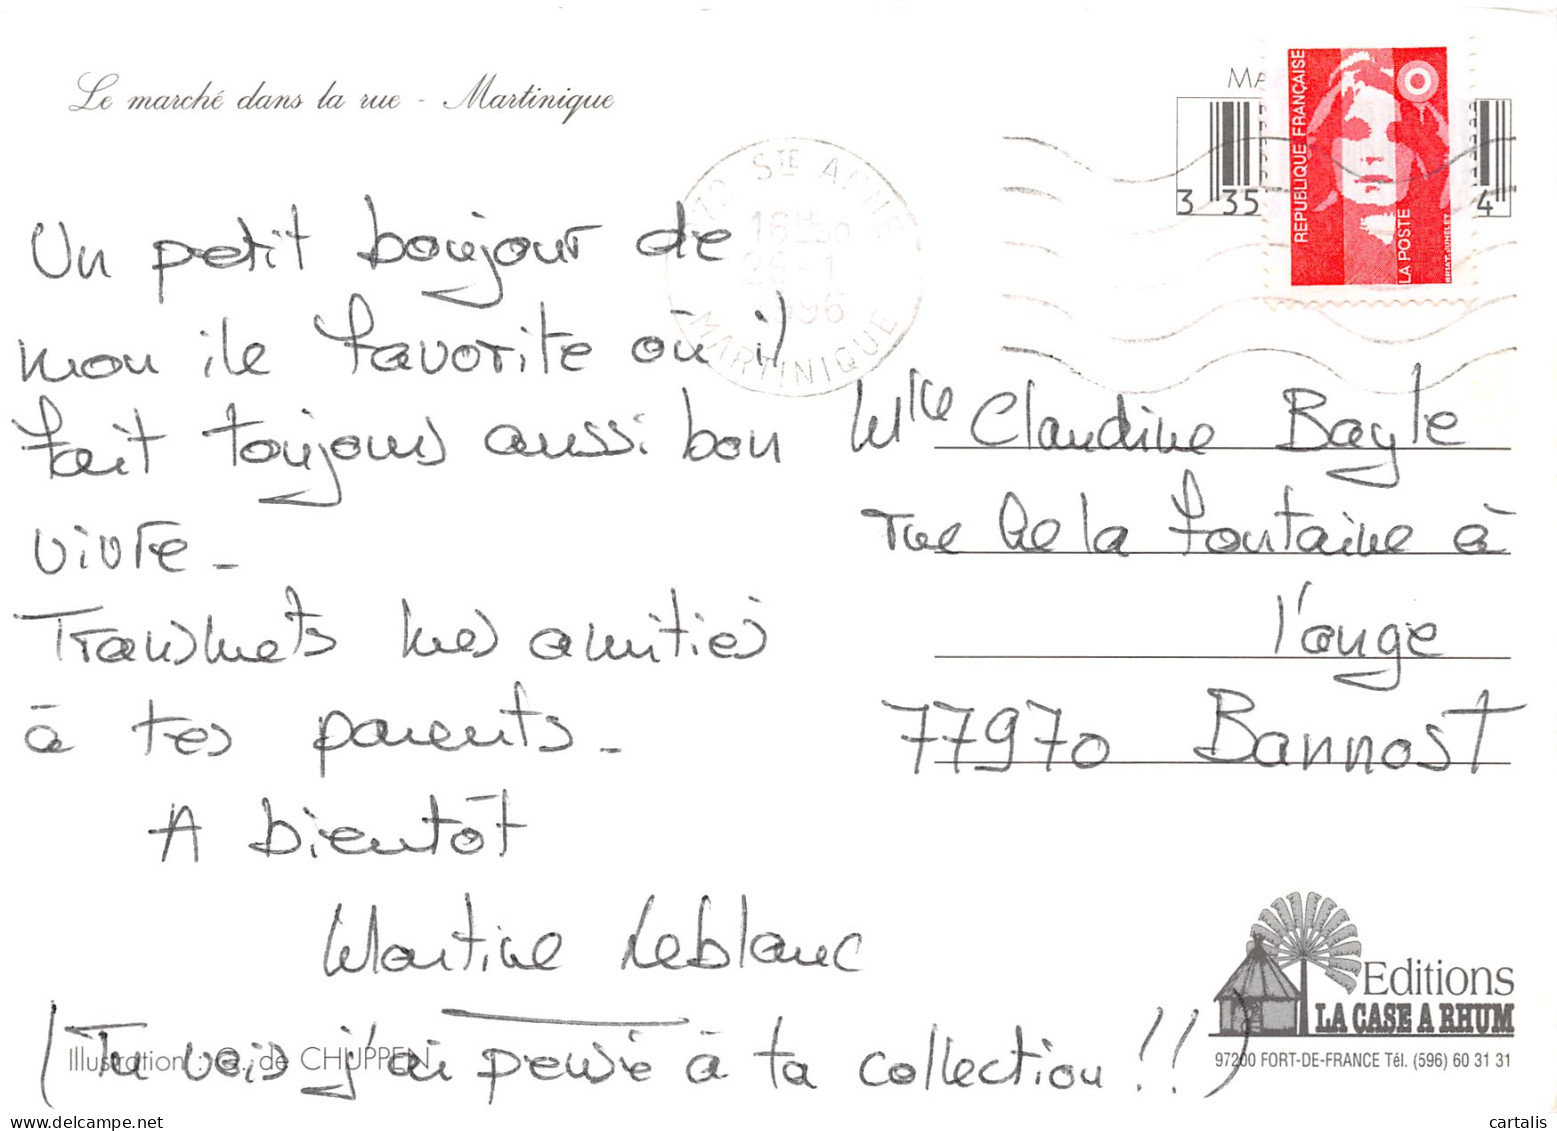 Le marché dans la rue - Martinique
MA
3 35 4
REPUBLIQUE FRANÇAISE
LA POSTE
BRIAT-JUMELET
72 STE ANNE
16H30
26-1
1996
MARTINIQUE
Un petit bonjour de
mon ile favorite où il
fait toujours aussi bon
vivre -
Transmets mes amitiés
à tes parents -
A bientôt
Martine Leblanc
(Tu vois j'ai pensé à ta collection !!)
Mlle Claudine Bayle
rue de la fontaine à
l'auge
77970 Bannost
Illustration : G. de CHUPPEN
Editions
LA CASE A RHUM
97200 FORT-DE-FRANCE Tél. (596) 60 31 31
cartalis